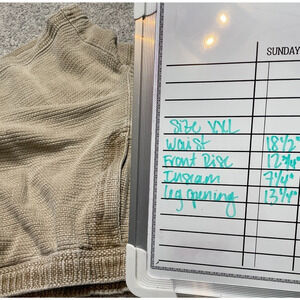 SUNDAY
Size XXL
Waist 18 1/2"
Front Rise 12 3/4"
Inseam 7 1/4"
leg opening 13 1/4"